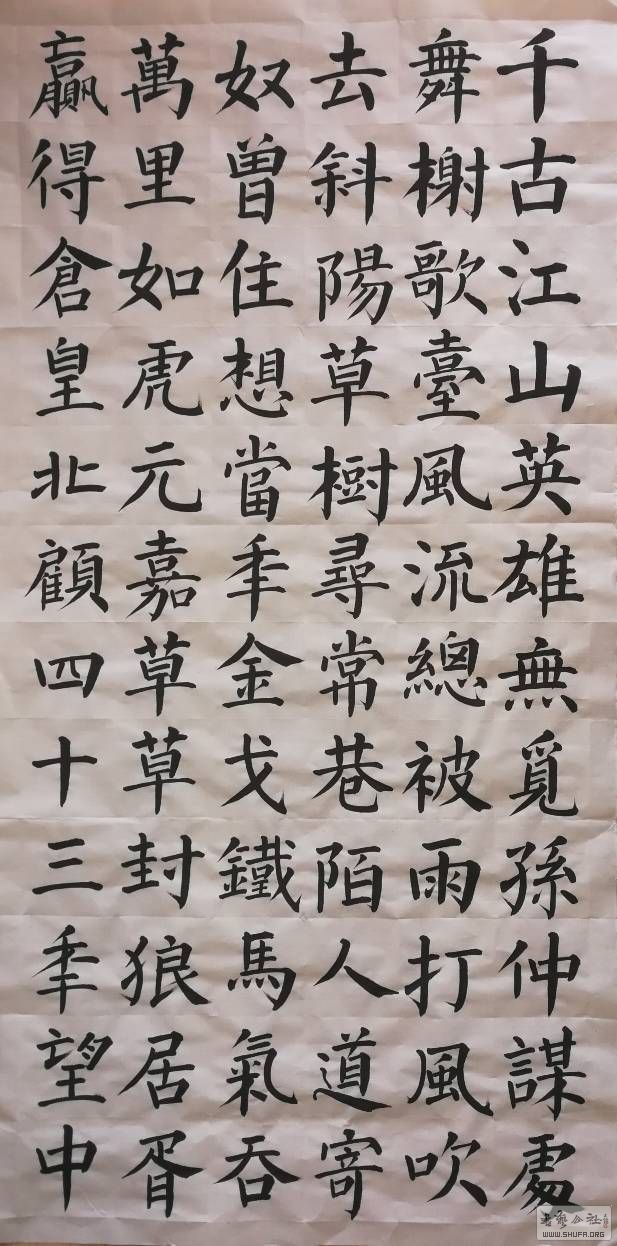 千古江山英雄無覓孫仲謀處
舞榭歌臺風流總被雨打風吹
去斜陽草樹尋常巷陌人道寄
奴曾住想當年金戈鐵馬氣吞
萬里如虎元嘉草草封狼居胥
贏得倉皇北顧四十三年望中
WWW.SHUFA.ORG